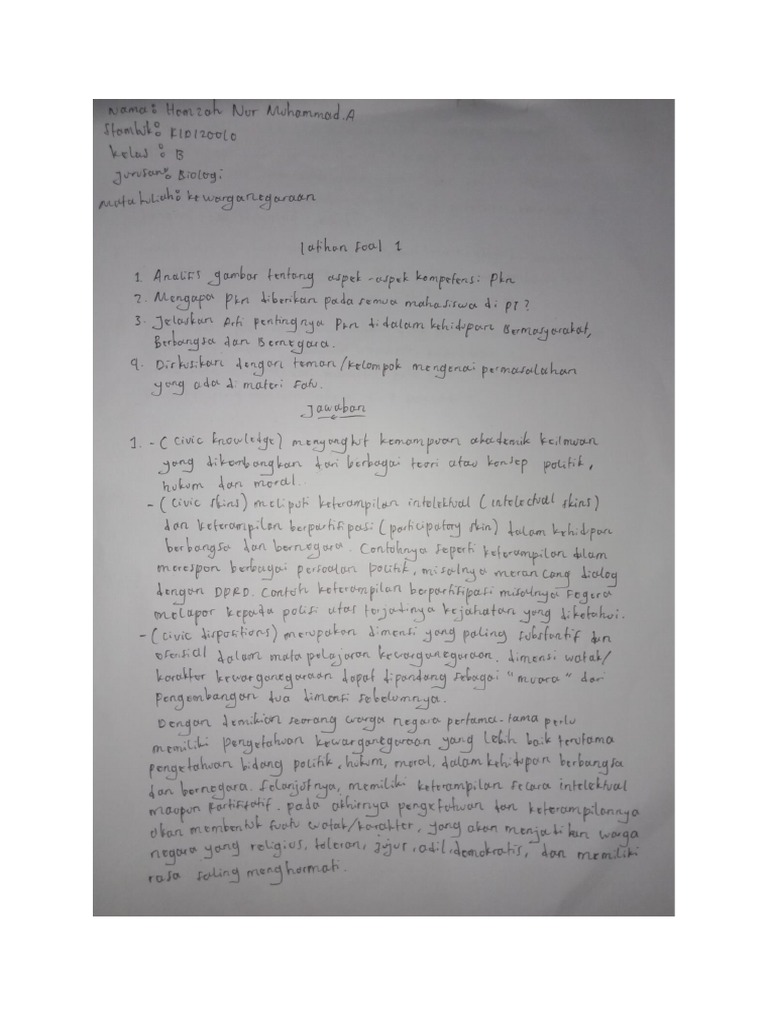 Nama : Hamzah Nur Muhammad.A
Stambuk : K1D120010
kelas : B
Jurusan : Biologi
Mata kuliah : kewarganegaraan
latihan soal 1
1. Analisis gambar tentang aspek-aspek kompetensi Pkn
2. Mengapa Pkn diberikan pada semua mahasiswa di PT?
3. Jelaskan Arti pentingnya Pkn di dalam kehidupan Bermasyarakat,
Berbangsa dan Bernegara.
4. Diskusikan dengan teman/kelompok mengenai permasalahan
yang ada di materi satu.
Jawaban
1. - (civic knowledge) menyangkut kemampuan akademik keilmuan
yang dikembangkan dari berbagai teori atau konsep politik,
hukum dan moral.
- (civic skins) meliputi keterampilan intelektual (intelectual skins)
dan keterampilan berpartisipasi (participatory skin) dalam kehidpan
berbangsa dan bernegara. Contohnya seperti keterampilan dalam
merespon berbagai persoalan politik, misalnya merancang dialog
dengan DPRD. Contoh keterampilan berpartisipasi misalnya segera
melapor kepada polisi atas terjadinya kejahatan yang diketahui.
- (civic dispotitions) merupakan dimensi yang paling substantif dan
esensial dalam mata pelajaran kewarganegaraan. dimensi watak/
karakter kewarganegaraan dapat dipandang sebagai "muara" dari
pengembangan dua dimensi sebelumnya.
Dengan demikian seorang warga negara pertama-tama perlu
memiliki pengetahuan kewarganegaraan yang lebih baik terutama
pengetahuan bidang politik, hukum, moral, dalam kehidupan berbangsa
dan bernegara. Selanjutnya, memiliki keterampilan secara intelektual
maupun partisitatif. pada akhirnya pengetahuan dan keterampilannya
akan membentuk suatu watak/karakter, yang akan menjadikan warga
negara yang religius, toleran, jujur, adil, demokratis, dan memiliki
rasa saling menghormati.